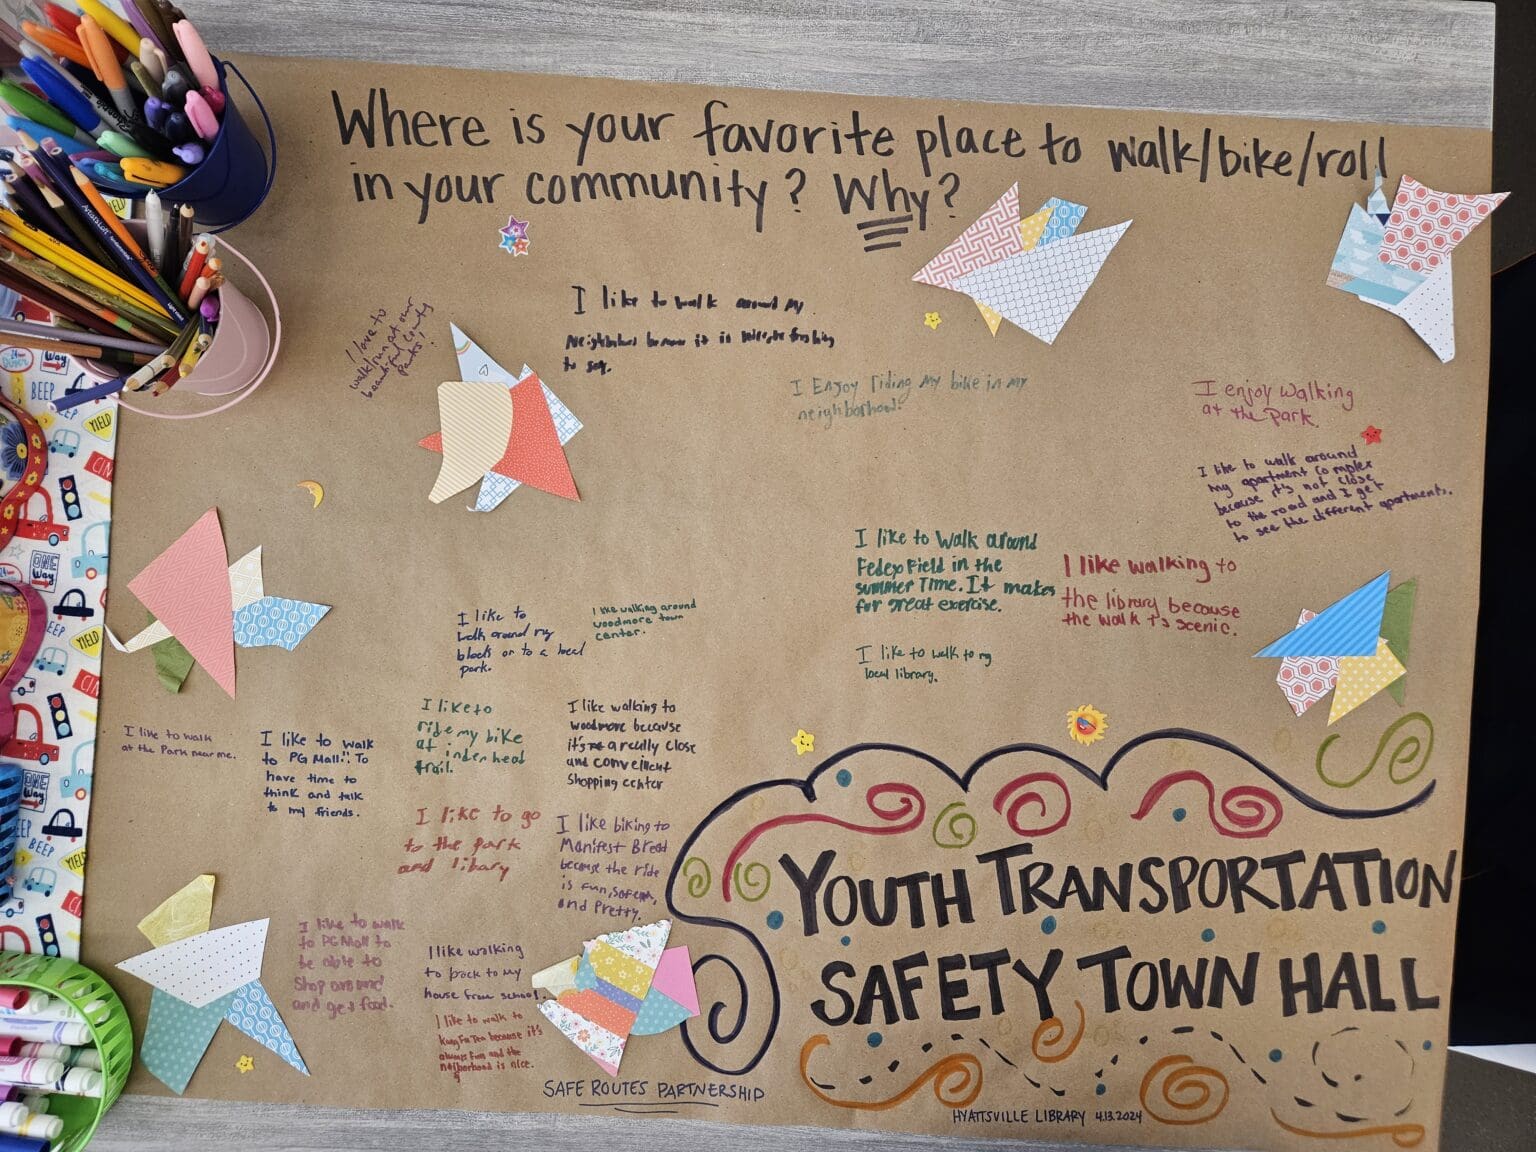 Where is your favorite place to walk/bike/roll
in your community? Why?
I love to
walk/run at our
beautiful County
Parks!
I like to walk around my
Neighborhood because it is
to say.
I Enjoy riding My bike in my
neighborhood!
I enjoy walking
at the Park
I like to walk around
my apartment complex
because it's not close
to the road and I get
to see the different apartments.
I like to walk around
Fedex Field in the
summer Time. It makes
for great exercise.
I like walking to
the library because
the walk is scenic.
I like to walk to my
local library.
I like to
walk around my
blocks or to a local
park.
I like walking around
woodmore town
center.
I like to walk
at the Park near me.
I like to walk
to PG Mall. To
have time to
think and talk
to my friends.
I like to
ride my bike
at indian head
trail.
I like walking to
woodmore because
it's a really close
and conveillent
shopping center
I like to go
to the park
and library
I like biking to
Manifest Bread
because the ride
is fun,
and Pretty.
I like to walk
to PG Mall to
be able to
Shop around
and get food.
I like walking
to back to my
house from school.
I like to walk to
Kung Fu Tea because it's
always fun and the
neighborhood is nice.
YOUTH TRANSPORTATION
SAFETY TOWN HALL
SAFE ROUTES PARTNERSHIP
HYATTSVILLE LIBRARY 4.13.2024
ONE
Way
BEEP
YIELD